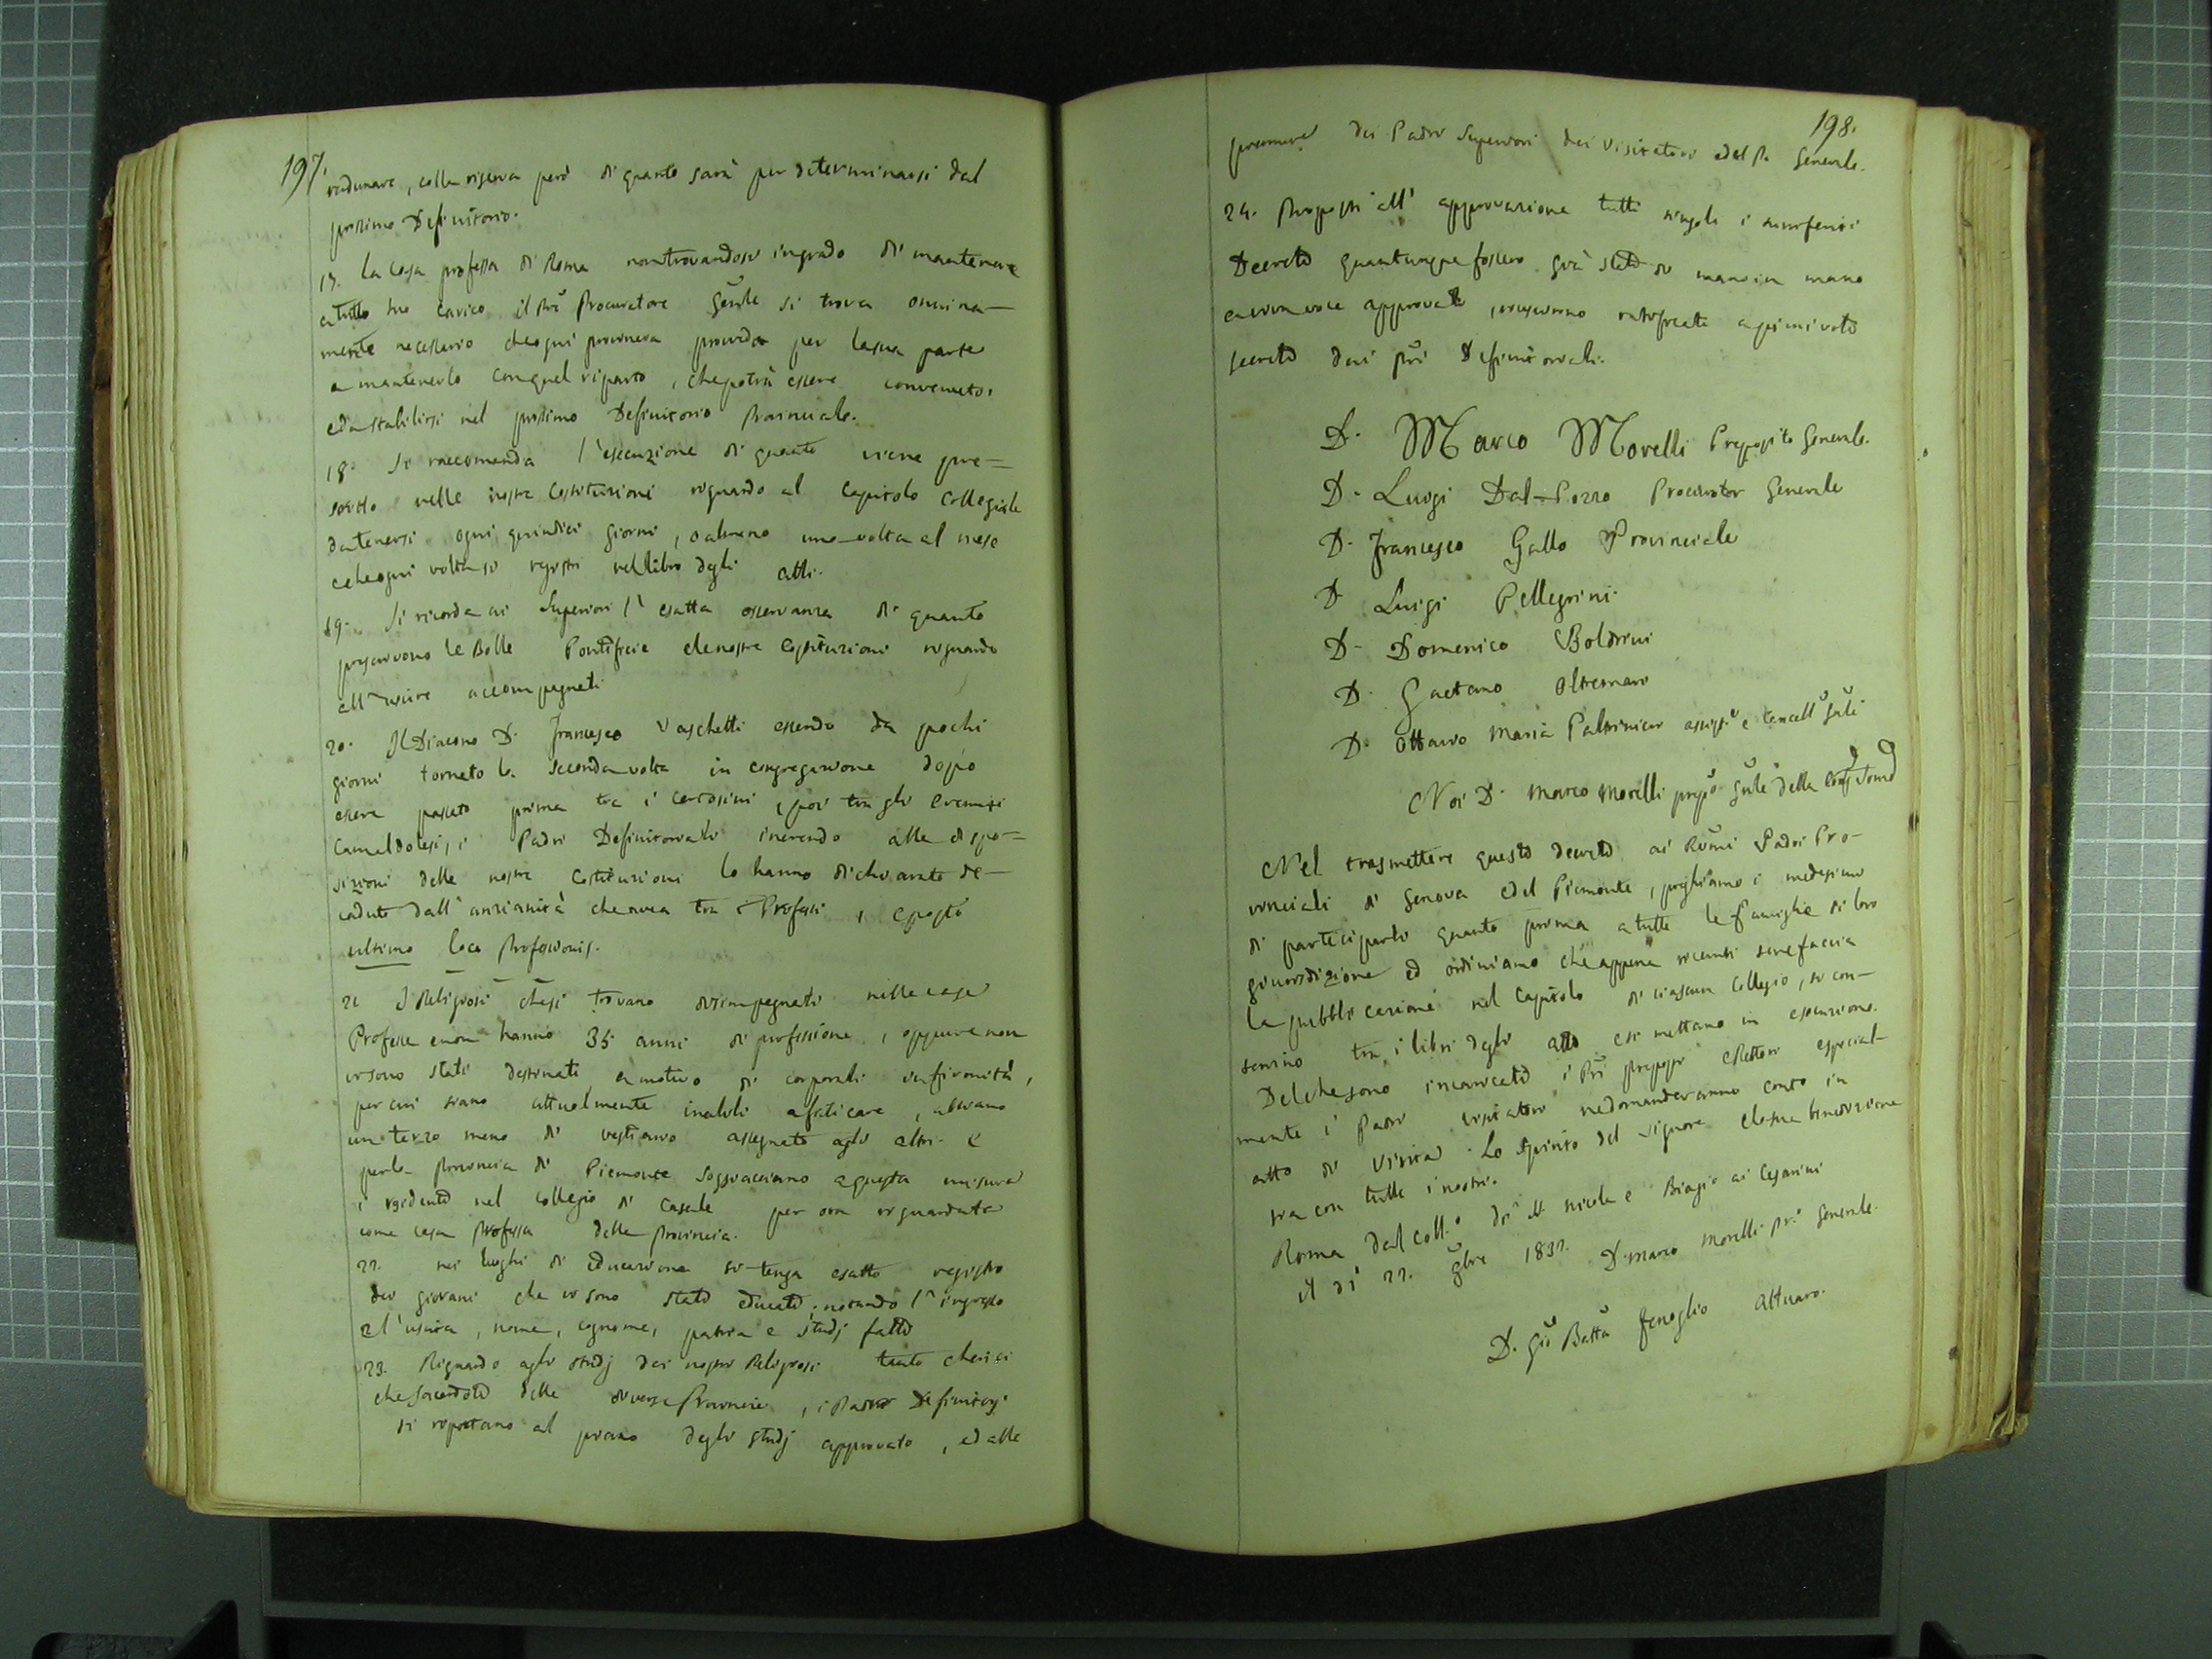 197.
radunare, colla riserva però di quanto sarà per determinarsi dal
prossimo Definitorio.
17. La Casa professa di Roma non trovandosi in grado di mantenere
a tutto suo carico il Prẽ Procuratore Gẽnle si trova onnina=
mente necessario che ogni provincia proveda per la sua parte
a mantenerlo con quel riparto, che potrà essere convenuto,
e da stabilirsi nel prossimo Definitorio Provinciale.
18. Si raccomanda l'esecuzione di quanto viene pre=
scritto nelle nostre Costituzioni riguardo al Capitolo Collegiale
da tenersi ogni quindici giorni, o almeno una volta al mese
e che ogni volta si registri nel libro degli atti.
19. Si ricorda ai Superiori l'esatta osservanza di quanto
prescrivono le Bolle Pontificie e le nostre Costituzioni riguardo
all'uscire accompagnati.
20. Il Diacono D. Francesco Vaschetti essendo da pochi
giorni tornato la seconda volta in congregazione dopo
essere passato prima tra i Certosini, poi tra gli Eremiti
Camaldolesi, i Padri Definitoriali inerendo alle dispo=
sizioni delle nostre Costituzioni lo hanno dichiarato de=
caduto dall'anzianità che avea tra i Professi, e posto
ultimo loco Professionis.
21 I Religiosi che si trovano disimpegnati nelle case
Professe e non hanno 35 anni di professione, oppure non
vi sono stati destinati a motivo di corporali infirmità,
per cui siano attualmente inabili a faticare, abbiano
un terzo meno di vestiario assegnato agli altri. E
per la provincia di Piemonte soggiacciano a questa misura
i residenti nel Collegio di Casale per ora risguardata
come casa Professa della Provincia.
22. nei luoghi di educazione si tenga esatto registro
dei giovani che vi sono stati educati, notando l'ingresso
e l'uscita, nome, cognome, patria e studj fatti
23. Riguardo agli studj dei nostri Religiosi tanto cherici
che Sacerdoti delle diverse Provincie, i Padri Definitorj
si riportano al piano degli studj approvato, ed alle
198.
premure dei Padri Superiori dei Visitatori e del P. Generale.
24. Proposti all'approvazione tutti singoli i surriferiti
Decreti quantunque fossero già stati di mano in mano
a viva voce approvati, vennero ratificati a pieni voti
secreti dai Prĩ Definitoriali.
D. Marco Morelli Preposito Generale.
D. Luigi Dal-Pozzo Procurator Generale
D. Francesco Gallo Provinciale
D Luigi Pellegrini
D. Domenico Boldrini
D. Gaetano Oltremari
D. Ottavio Maria Paltrinieri assist.e e Cancell. Gñli
Noi D. Marco Morelli prepõ Gñle della Cong. Somã
Nel trasmettere questi decreti ai Rm̃i Padri Pro-
vinciali di Genova e del Piemonte, preghiamo i medesimi
di parteciparli quanto prima a tutte le Famiglie di loro
giurisdizione ed ordiniamo che appena ricevuti se ne faccia
la pubblicazione nel Capitolo di ciascun Collegio, si con-
servino tra i libri degli atti e si mettano in esecuzione.
Del che sono incaricati i Prĩ prepositi e Rettori e special-
mente i Padri visitatori ne domanderanno conto in
atto di Visita. Lo spirito del Signore e la sua benedizione
sia con tutti i nostri.
Roma dal Coll.o dei SS. Nicola e Biagio ai Cesarini
il dì 22. 8bre 1832. D. Marco Morelli Pr. Generale.
D. Gio Batta Fenoglio Attuaro.